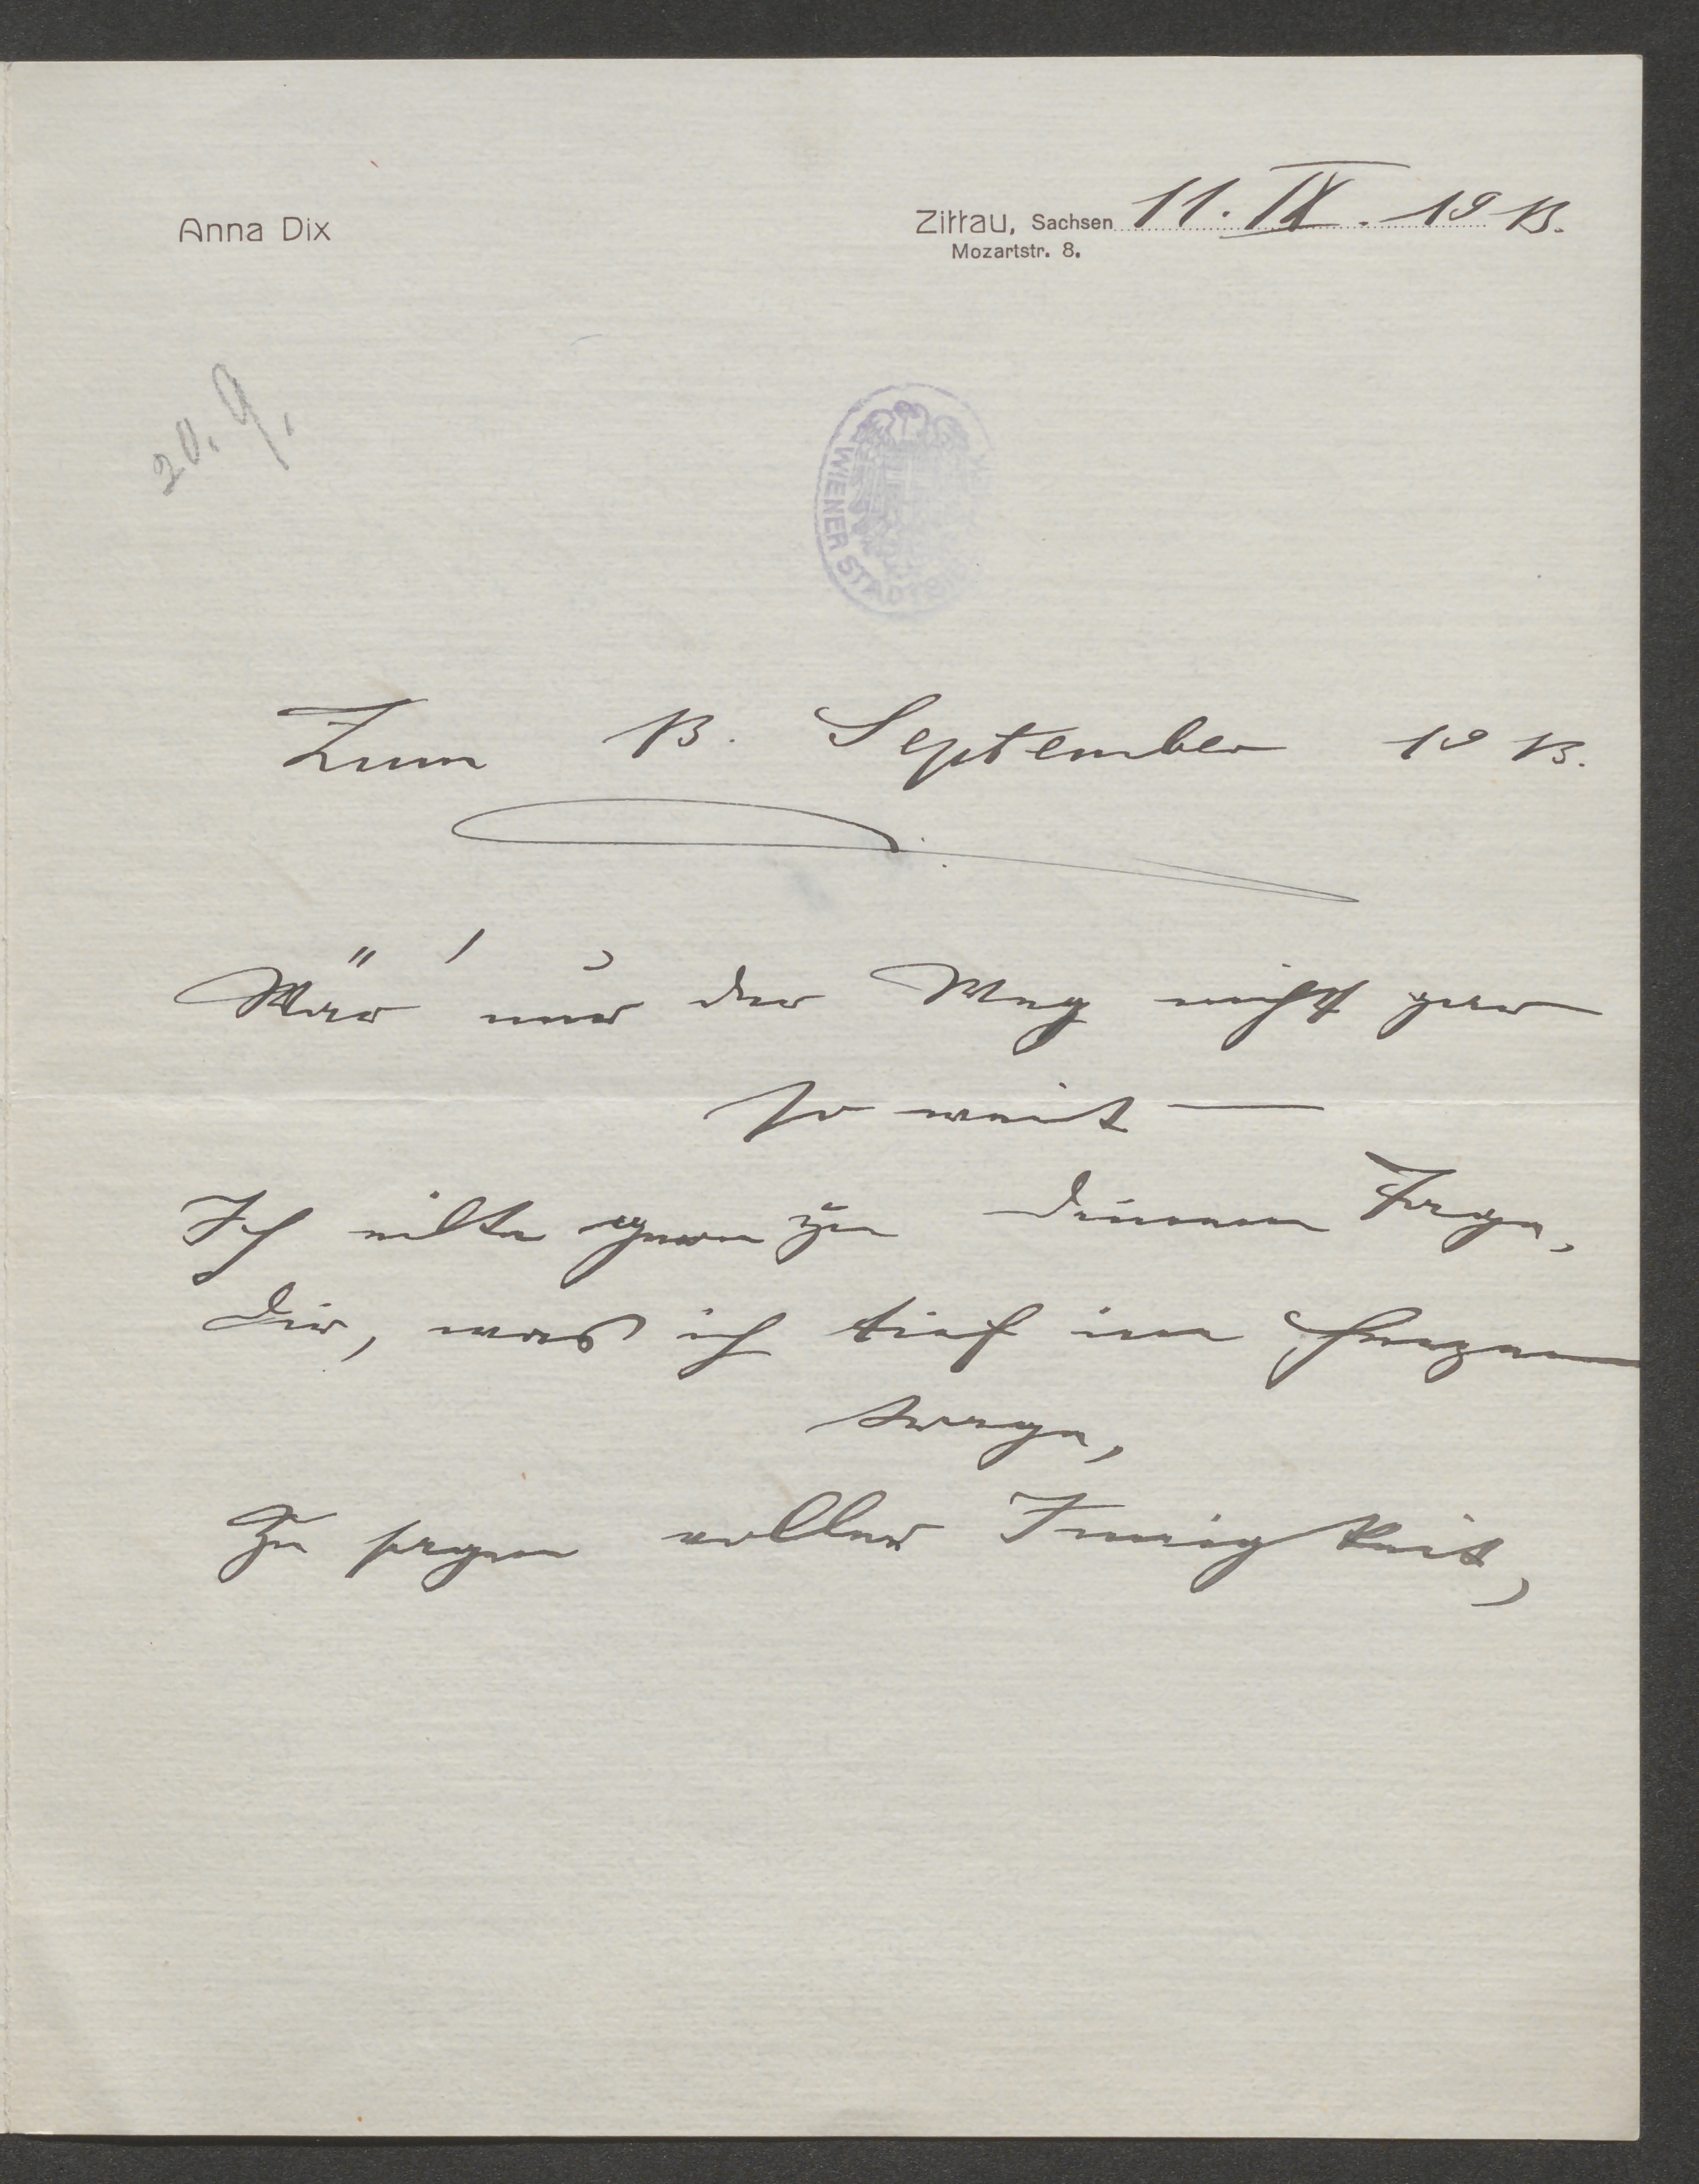 Anna Dix
Zittau, Sachsen 11. IX. 1913.
Mozartstr. 8.
20. 9.
WIENER STADTBI
Zum 13. September 1913.
Wär' nur der Weg nicht gar
so weit —
Ich eilte gern zu Deinem Tage,
Dir, was ich tief im Herzen
trage,
Zu sagen voller Innigkeit,